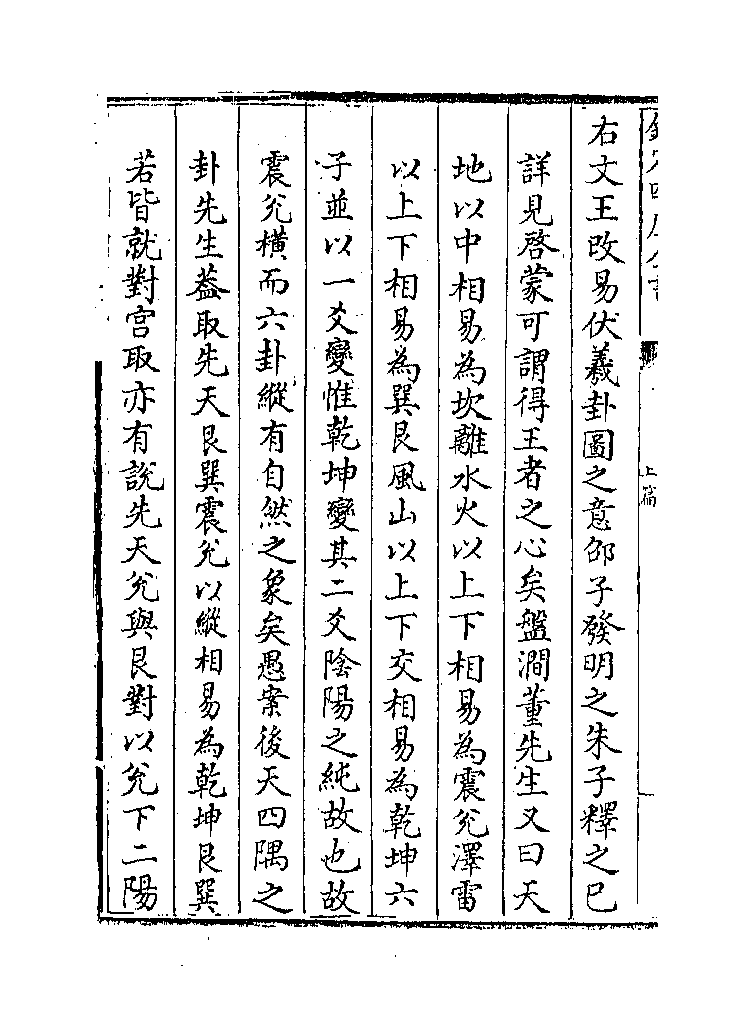 右文王改易伏羲卦圖之意邵子發明之朱子釋之已
詳見啓蒙可謂得王者之心矣盤澗董先生又曰天
地以中相易為坎離水火以上下相易為震兊澤雷
以上下相易為巽艮風山以上下交相易為乾坤六
子並以一爻變惟乾坤變其二爻陰陽之純故也故
震兊橫而六卦縱有自然之象矣愚案後天四隅之
卦先生葢取先天艮巽震兊以縱相易為乾坤艮巽
若皆就對宫取亦有說先天兊與艮對以兊下二陽
上篇